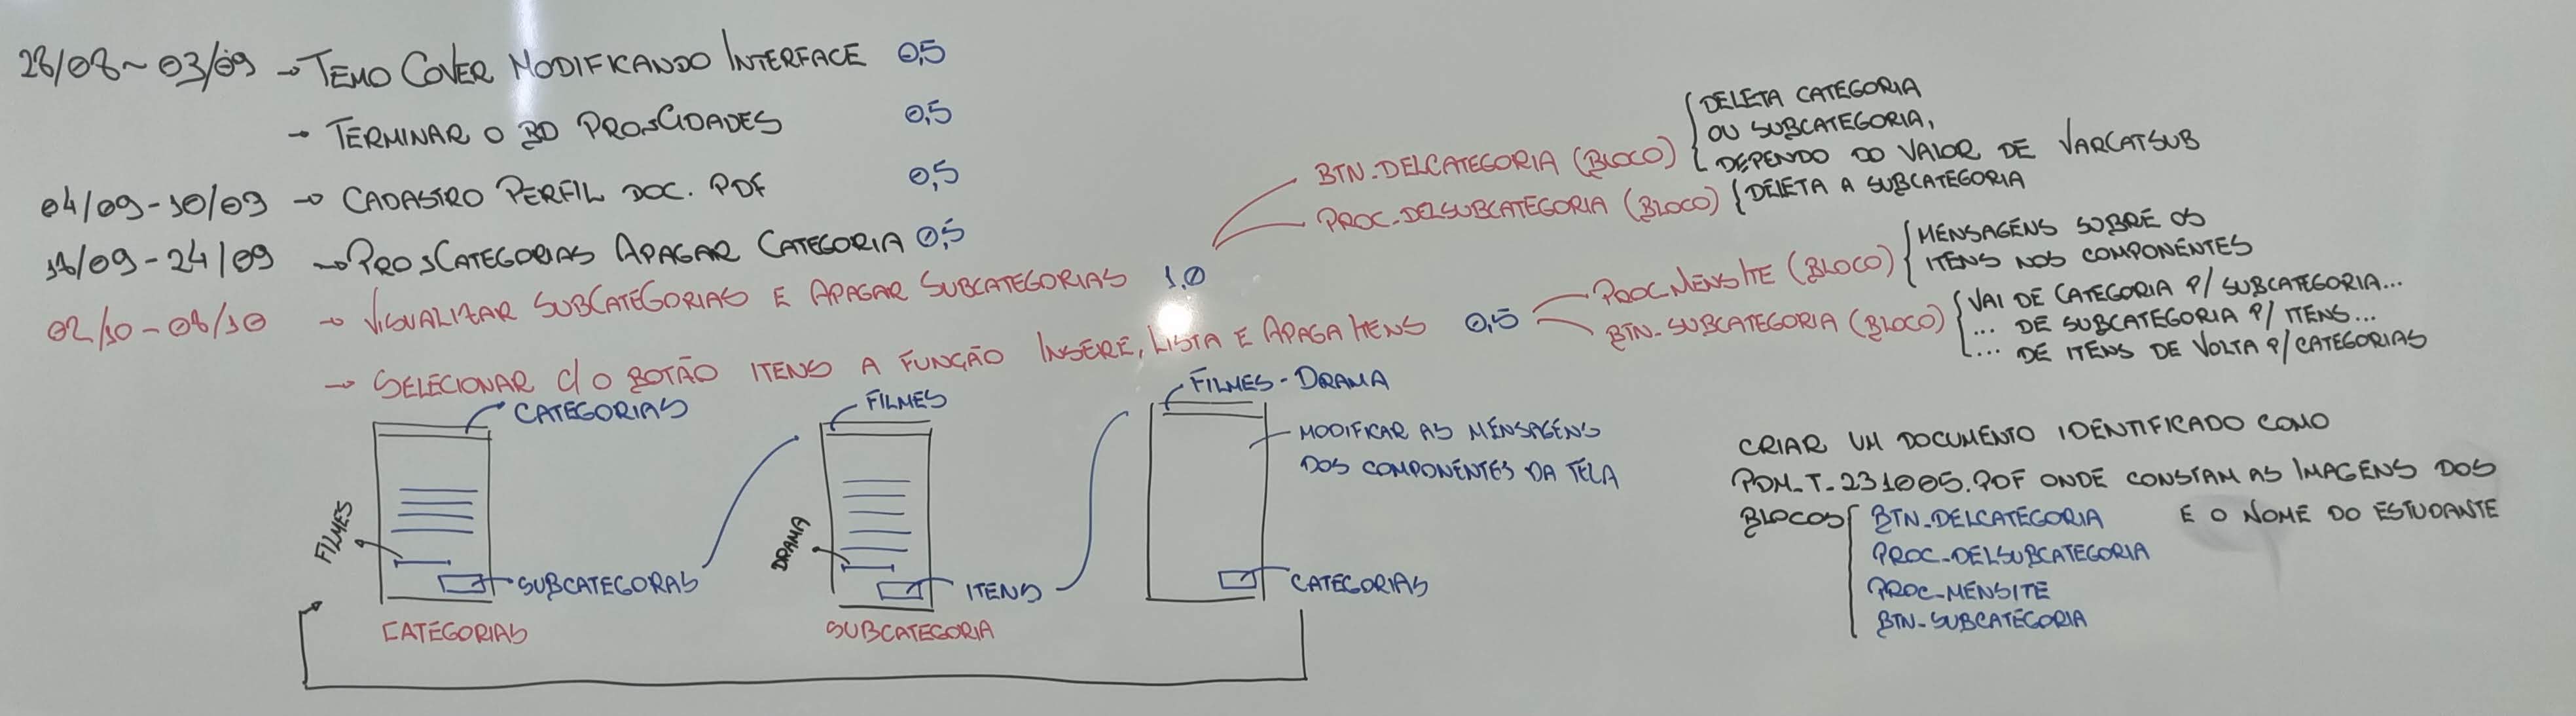 28/08~03/09 → TEMO COVER MODIFICANDO INTERFACE 0,5
→ TERMINAR O BD PROSCIDADES 0,5
04/09-10/09 → CADASTRO PERFIL DOC. PDF 0,5
18/09-24/09 → PROSCATEGORIAS APAGAR CATEGORIA 0,5
02/10-08/10 → VISUALIZAR SUBCATEGORIAS E APAGAR SUBCATEGORIAS 1.0
→ SELECIONAR C/ O BOTÃO ITENS A FUNÇÃO INSERE, LISTA E APAGA ITENS 0,5
BTN_DELCATEGORIA (BLOCO)
DELETA CATEGORIA
OU SUBCATEGORIA,
DEPENDO DO VALOR DE VARCATSUB
PROC_DELSUBCATEGORIA (BLOCO)
DELETA A SUBCATEGORIA
PROCMENSITE (BLOCO)
MENSAGENS SOBRE OS
ITENS NOS COMPONENTES
BTN_SUBCATEGORIA (BLOCO)
VAI DE CATEGORIA P/ SUBCATEGORIA...
... DE SUBCATEGORIA P/ ITENS...
... DE ITENS DE VOLTA P/ CATEGORIAS
CATEGORIAS
FILMES
SUBCATEGORAS
CATEGORIAS
FILMES
DRAMA
ITENS
SUBCATEGORIA
FILMES - DRAMA
MODIFICAR AS MENSAGENS
DOS COMPONENTES DA TELA
CATEGORIAS
CRIAR UM DOCUMENTO IDENTIFICADO COMO
PDM_T_231005.PDF ONDE CONSTAM AS IMAGENS DOS
BLOCOS BTN_DELCATEGORIA E O NOME DO ESTUDANTE
PROC_DELSUBCATEGORIA
PROC_MENSITE
BTN_SUBCATEGORIA